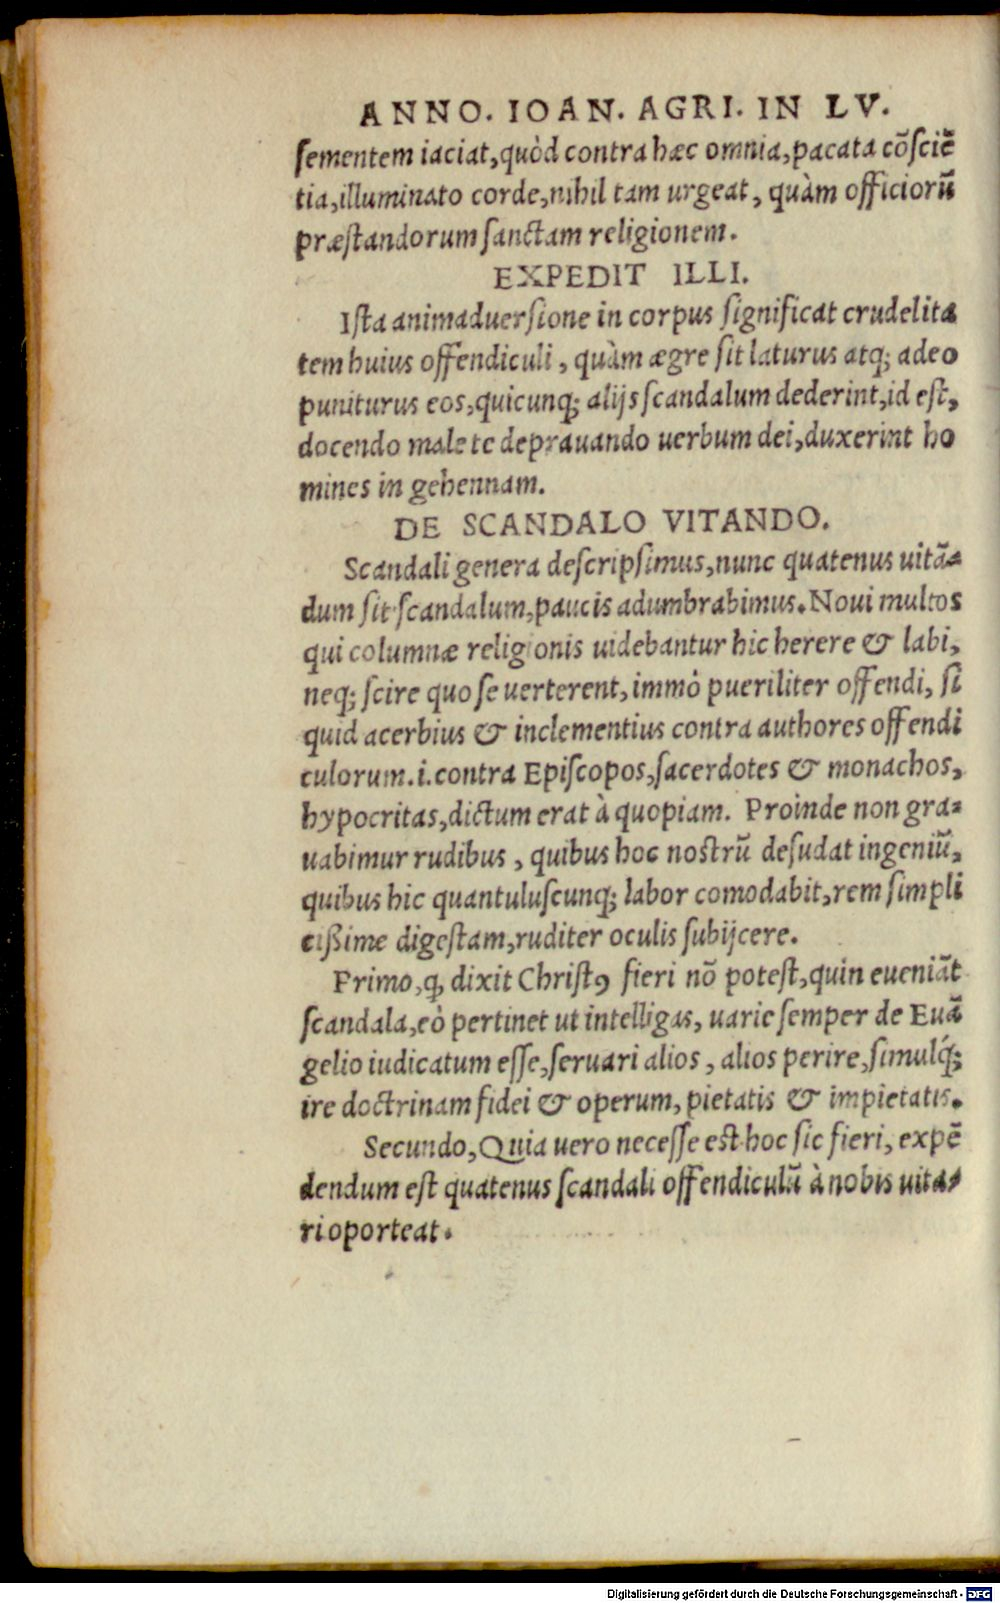 ANNO. IOAN. AGRI. IN LV.
ſementem iaciat,quòd contra hæc omnia,pacata cõſciẽ
tia,illuminato corde,nihil tam urgeat, quàm officiorũ
præſtandorum ſanctam religionem.
EXPEDIT ILLI.
Iſta animaduerſione in corpus ſignificat crudelita
tem huius offendiculi, quàm ægre ſit laturus atq; adeo
puniturus eos,quicunq; alijs ſcandalum dederint,id eſt,
docendo male te deprauando uerbum dei,duxerint ho
mines in gehennam.
DE SCANDALO VITANDO.
Scandali genera deſcripſimus,nunc quatenus uitã-
dum ſit ſcandalum,paucis adumbrabimus. Noui multos
qui columnæ religionis uidebantur hic herere & labi,
neq; ſcire quo ſe uerterent, immò pueriliter offendi, ſi
quid acerbius & inclementius contra authores offendi
culorum.i.contra Epiſcopos,ſacerdotes & monachos,
hypocritas,dictum erat à quopiam. Proinde non gra-
uabimur rudibus, quibus hoc noſtrũ deſudat ingeniũ,
quibus hic quantuluſcunq; labor comodabit,rem ſimpli
cißime digeſtam,ruditer oculis ſubijcere.
Primo,ꝙ dixit Chriſtꝰ fieri nõ poteſt,quin eueniãt
ſcandala,eò pertinet ut intelligas, uarie ſemper de Euã
gelio iudicatum eſſe,ſeruari alios, alios perire,ſimulq́;
ire doctrinam fidei & operum, pietatis & impietatis.
Secundo,Quia uero neceſſe est hoc ſic fieri, expẽ
dendum eſt quatenus ſcandali offendiculũ à nobis uita-
ri oporteat.
Digitalisierung gefördert durch die Deutsche Forschungsgemeinschaft - DFG